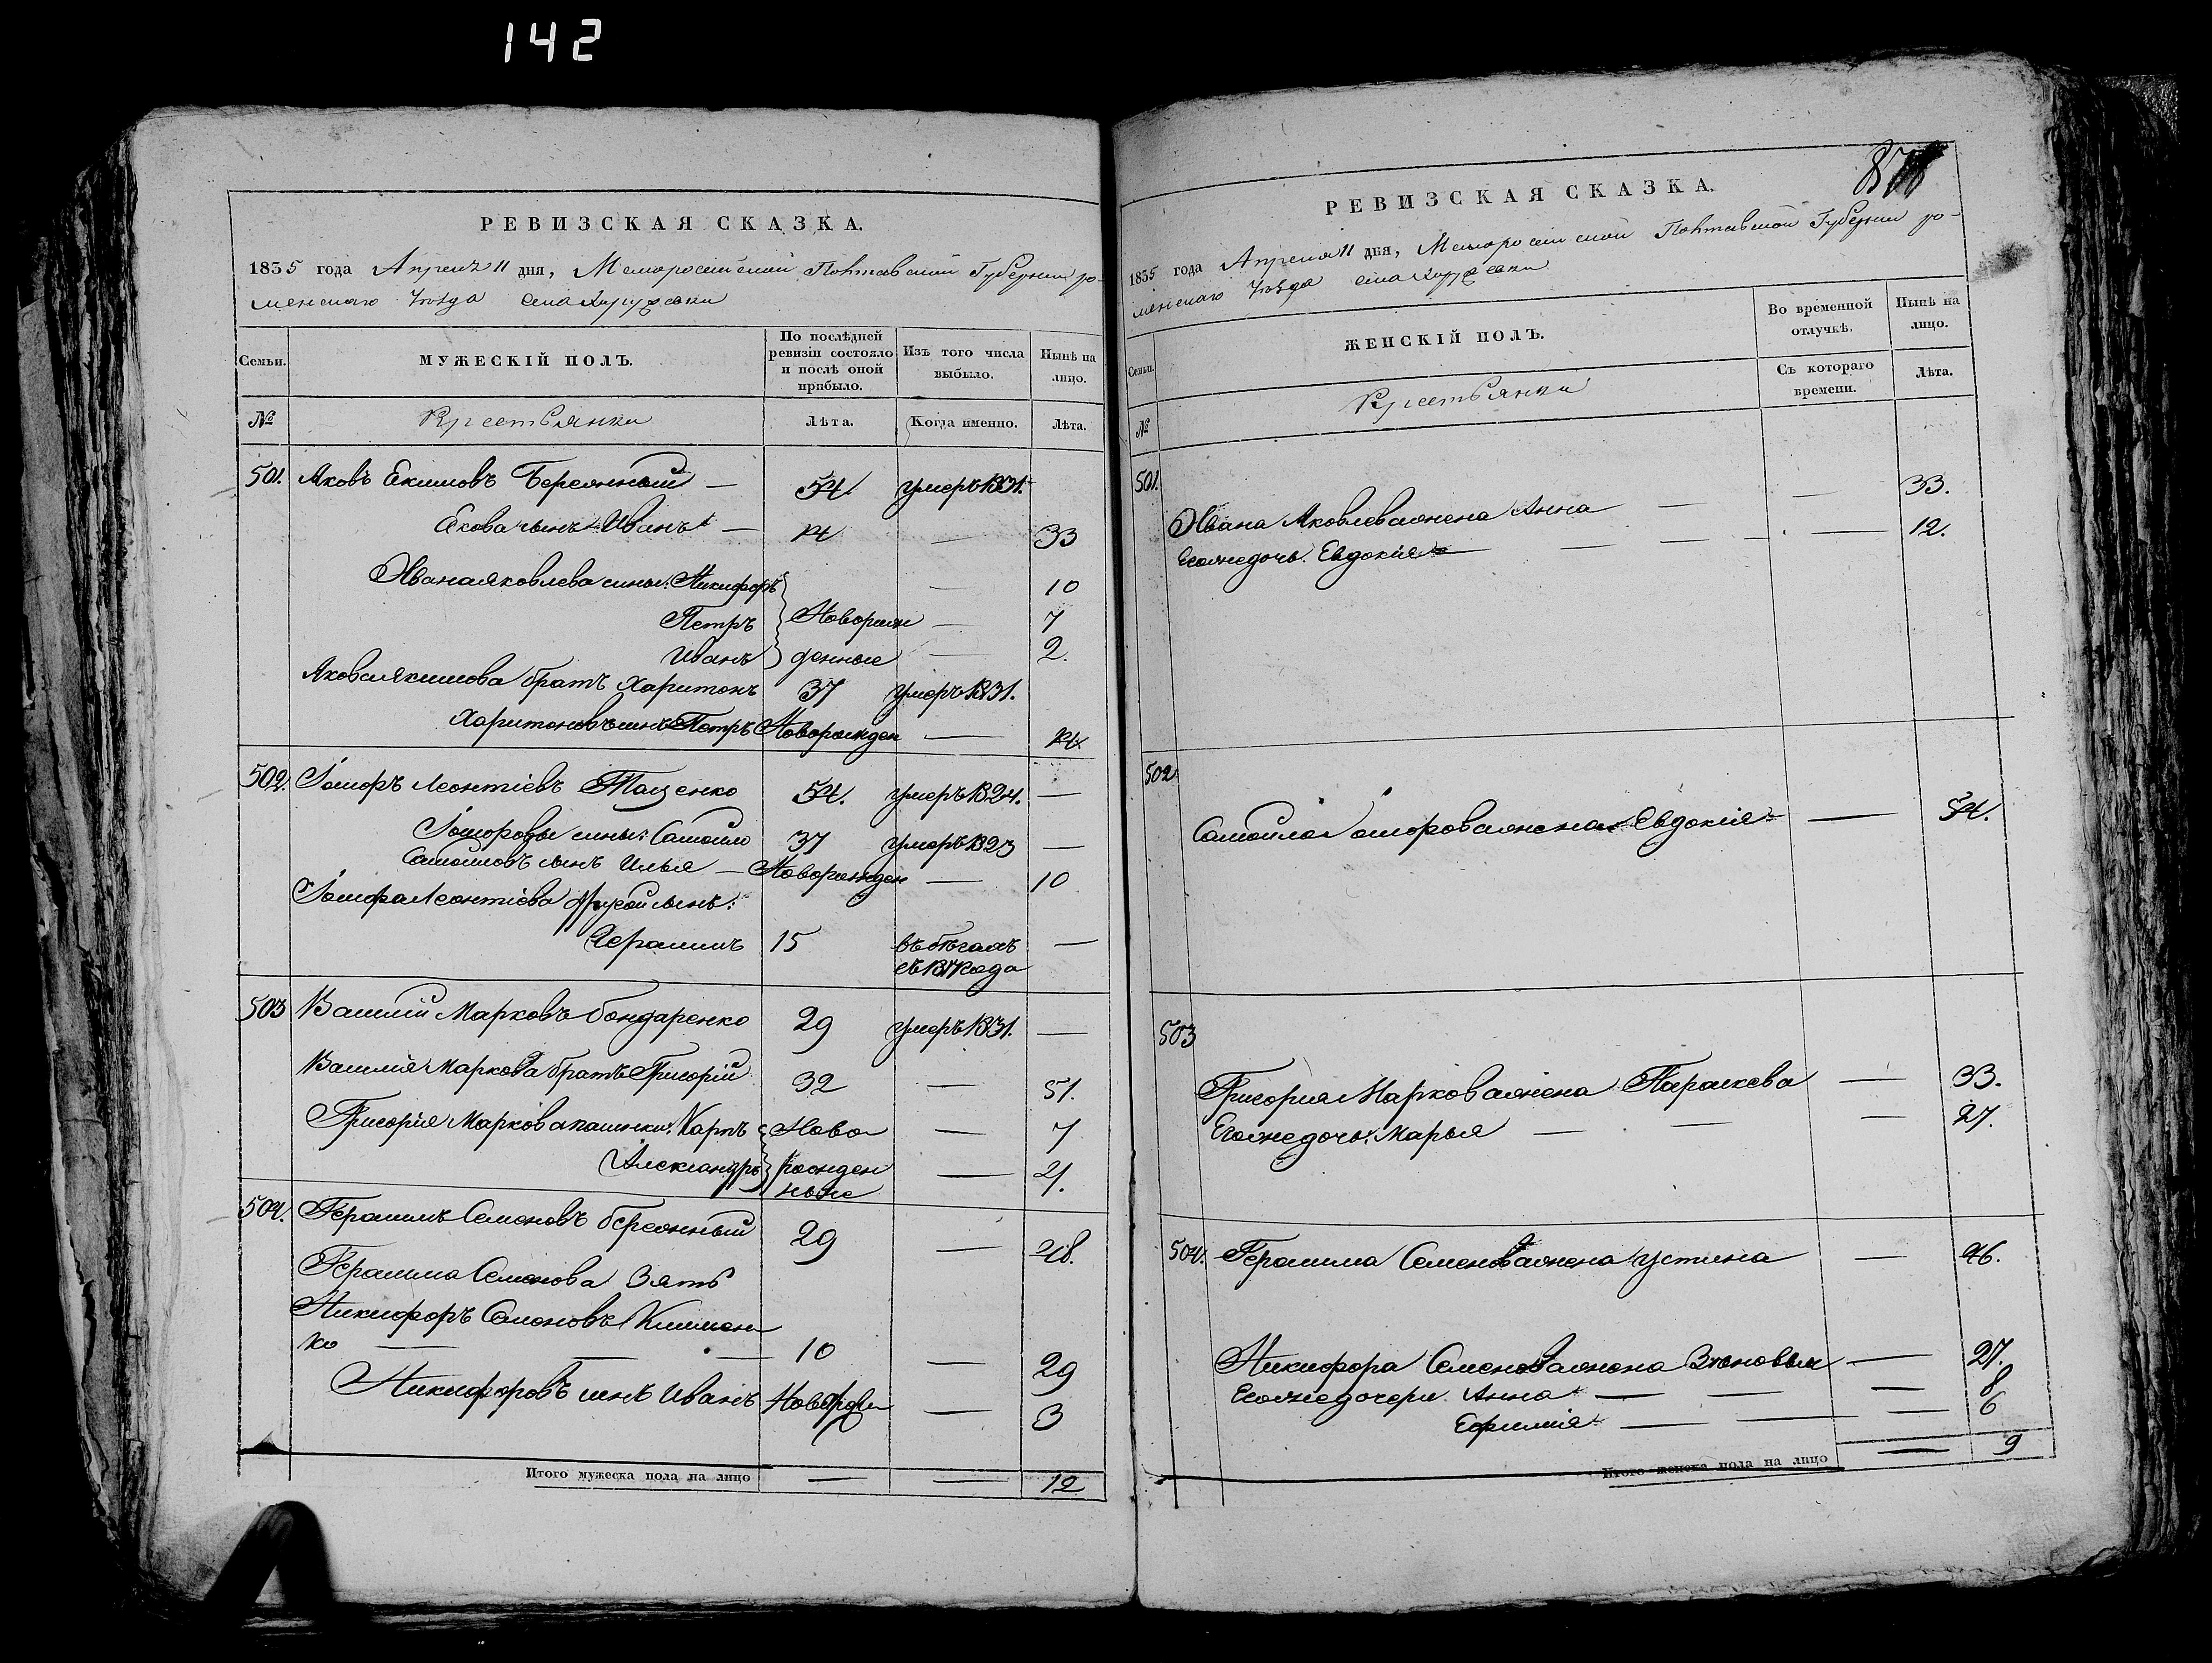 142
РЕВИЗСКАЯ СКАЗКА.
1835 года Апреля 11 дня, Малоросійской Полтавской Губернии ро-
менскаго Уѣзда села
Семьи.
МУЖЕСКІЙ ПОЛЪ.
По послѣдней ревизіи состояло и послѣ оной прибыло.
Изъ того числа выбыло.
Нынѣ на лицо.
№
Крестьянки
Лѣта.
Когда именно.
Лѣта.
501. Яковъ Екимовъ Бережный — 54. умеръ 1831.
Екова сынъ Иванъ — 14 — 33
Ивана яковлева сины: Никифоръ — 10
Петръ Новорож — 7
Иванъ денные — 2.
Якова Якимова братъ Харитонъ 37 умеръ 1831.
Харитоновъ синъ Петръ Новорожден — 14
502. Леонтіевъ Тащенко 54. умеръ 1824. —
сины: Самойло 37 умеръ 1823 —
Самойловъ сынъ Илья — Новорожден — 10
Леонтіева другой сынъ:
Герасимъ 15 въ бѣгахъ —
съ года
503 Василій Марковъ бондаренко 29 умеръ 1831. —
Василия Маркова братъ Григорій 32 — 51.
Григорія Маркова Карпъ Ново — 7
Александръ рожден — 21.
ные
504. Герасимъ Семеновъ бережный 29 — 48.
Герасима Семенова Зять
Никифоръ Семеновъ Климен
ко — 10 — 29
Никифоровъ синъ Иванъ — 3
Итого мужеска пола на лицо — — 12
РЕВИЗСКАЯ СКАЗКА.
1835 года Апреля 11 дня, Малоросійской Полтавской Губернии ро-
менскаго Уѣзда села
Семьи.
ЖЕНСКІЙ ПОЛЪ.
Во временной отлучкѣ.
Нынѣ на лицо.
№
Крестьянки
Съ котораго времени.
Лѣта.
501. Ивана Яковлева жена Анна — — 33.
Егоже дочь. Евдокия — — 12.
502 Самойла жена Евдокия — 54.
503 Григория Маркова жена Параскева — 33.
Егоже дочь: Марья — — 27.
504. Герасима Семенова жена устина — 46.
Никифора Семенова жена — 27.
Егоже дочери Анна — — — 8
Ефимія — — — 6
Итого женска пола на лицо — 9